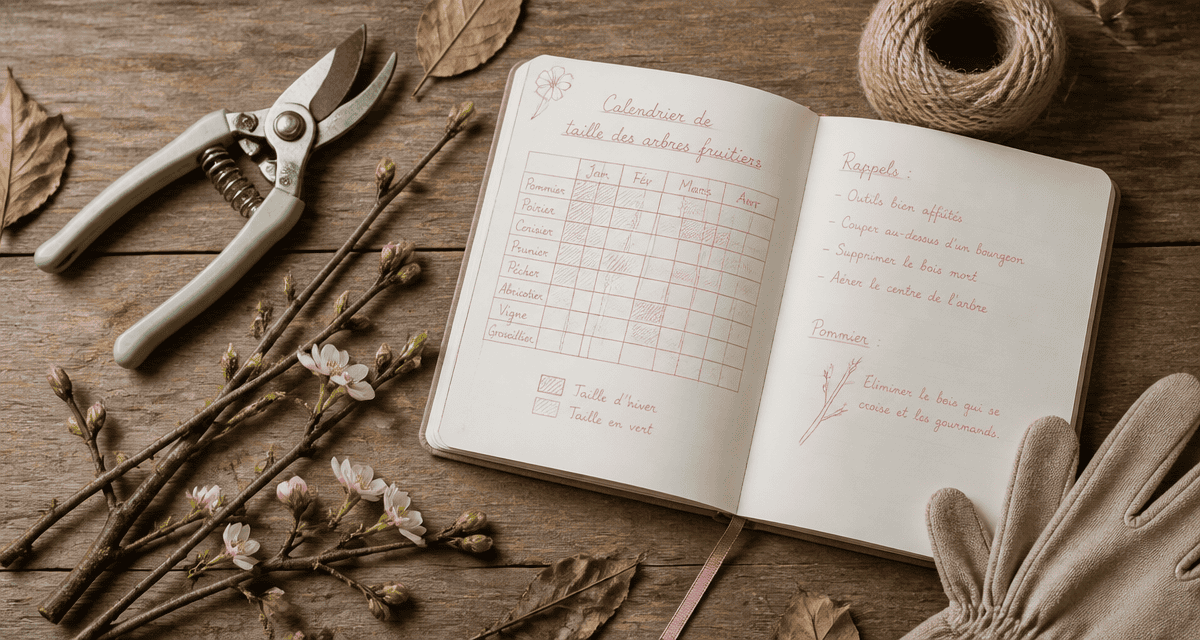 Calendrier de
taille des arbres fruitiers
Jan Fév Mars Avr
Pommier
Poirier
Cerisier
Prunier
Pêcher
Abricotier
Vigne
Groseillier
Taille d'hiver
Taille en vert
Rappels :
- Outils bien affûtés
- Couper au-dessus d'un bourgeon
- Supprimer le bois mort
- Aérer le centre de l'arbre
Pommier :
Eliminer le bois qui se
croise et les gourmands.